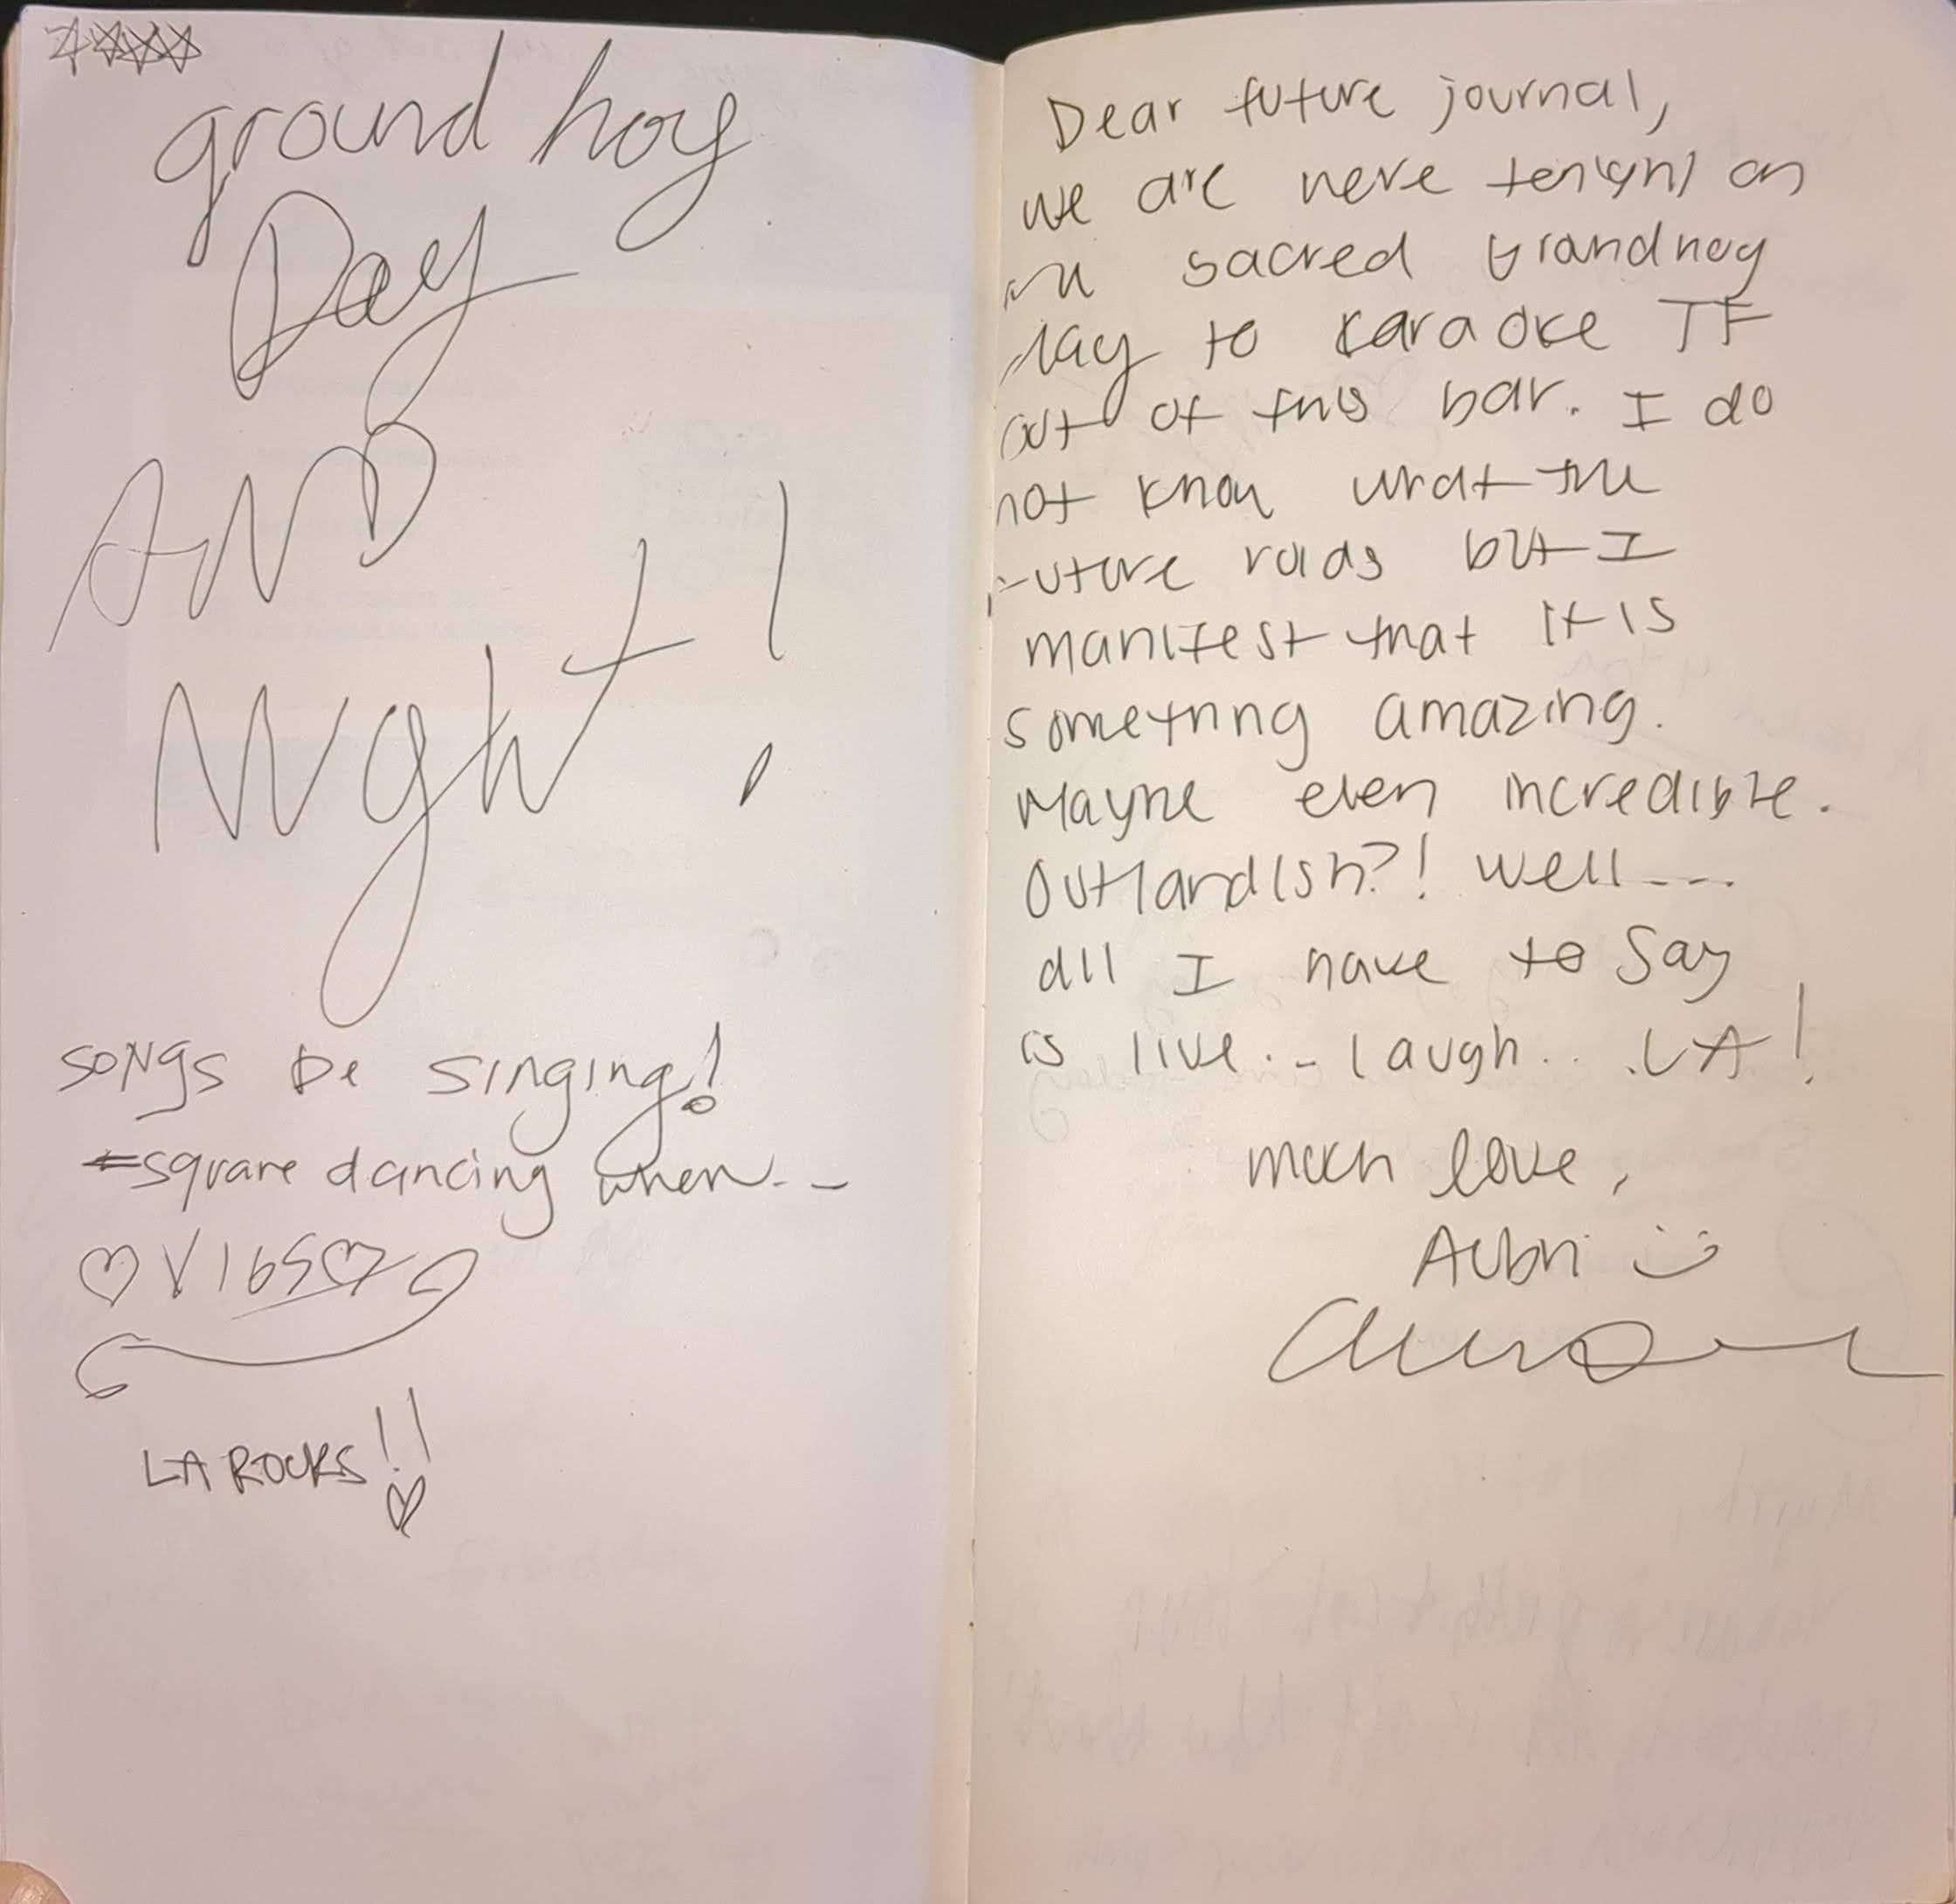 ground hog
Day
AND
Night!
SONGS be singing!
square dancing when--
♡VIBS♡
LA ROCKS!!
Dear future journal,
we are here tonight on
this sacred grandhog
day to karaoke TF
out of this bar. I do
not know what the
future holds but I
manifest that it is
something amazing.
Maybe even incredible.
Outlandish?! well---
all I have to say
is live.. laugh... LA!
much love,
Aubri :)